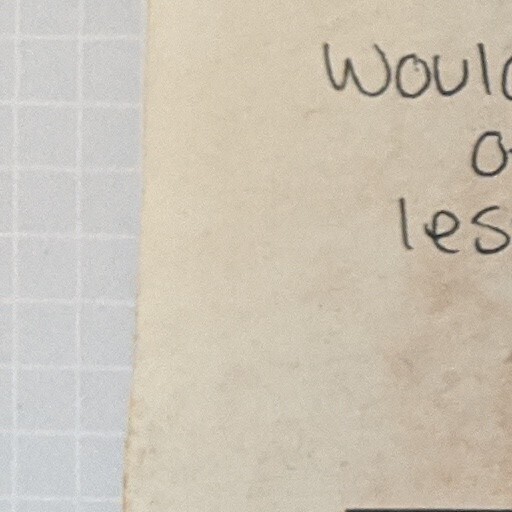 Woul
o
les